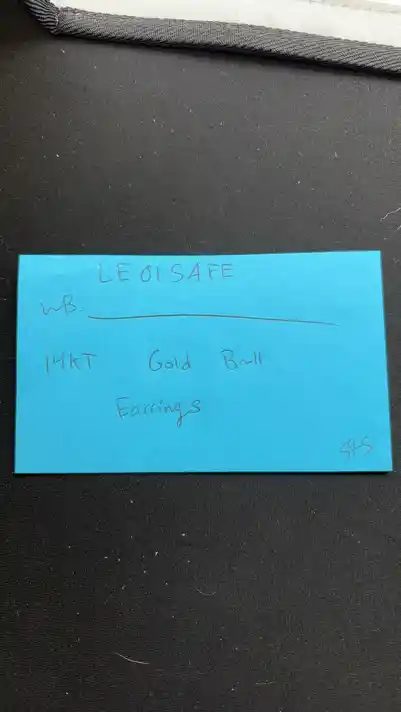 LE01SAFE
WB.
14KT Gold Ball
Earrings